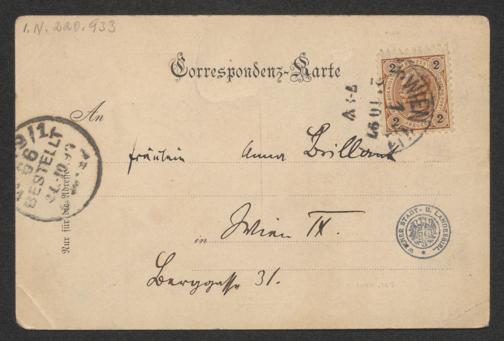 I. N. 220.933
Correspondenz-Karte
2 2
2 2
WIEN
An
BESTELLT
Nur für die Adresse
Fräulein Anna Brillant
in Wien IX.
Berggasse 31.
WIENER STADT- U. LANDESBIBL.